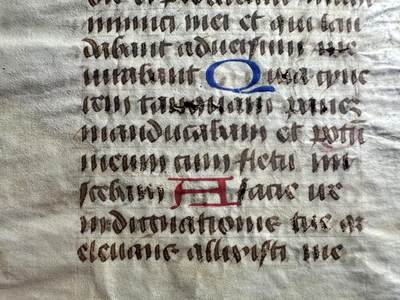 nimici mei et qui lau
dabant adversum me
iurabant Quia cine
rem tanquam panem
manducabam et potū
meum cum fletu mi
scebam A facie ire
indignationis tue
elevans me